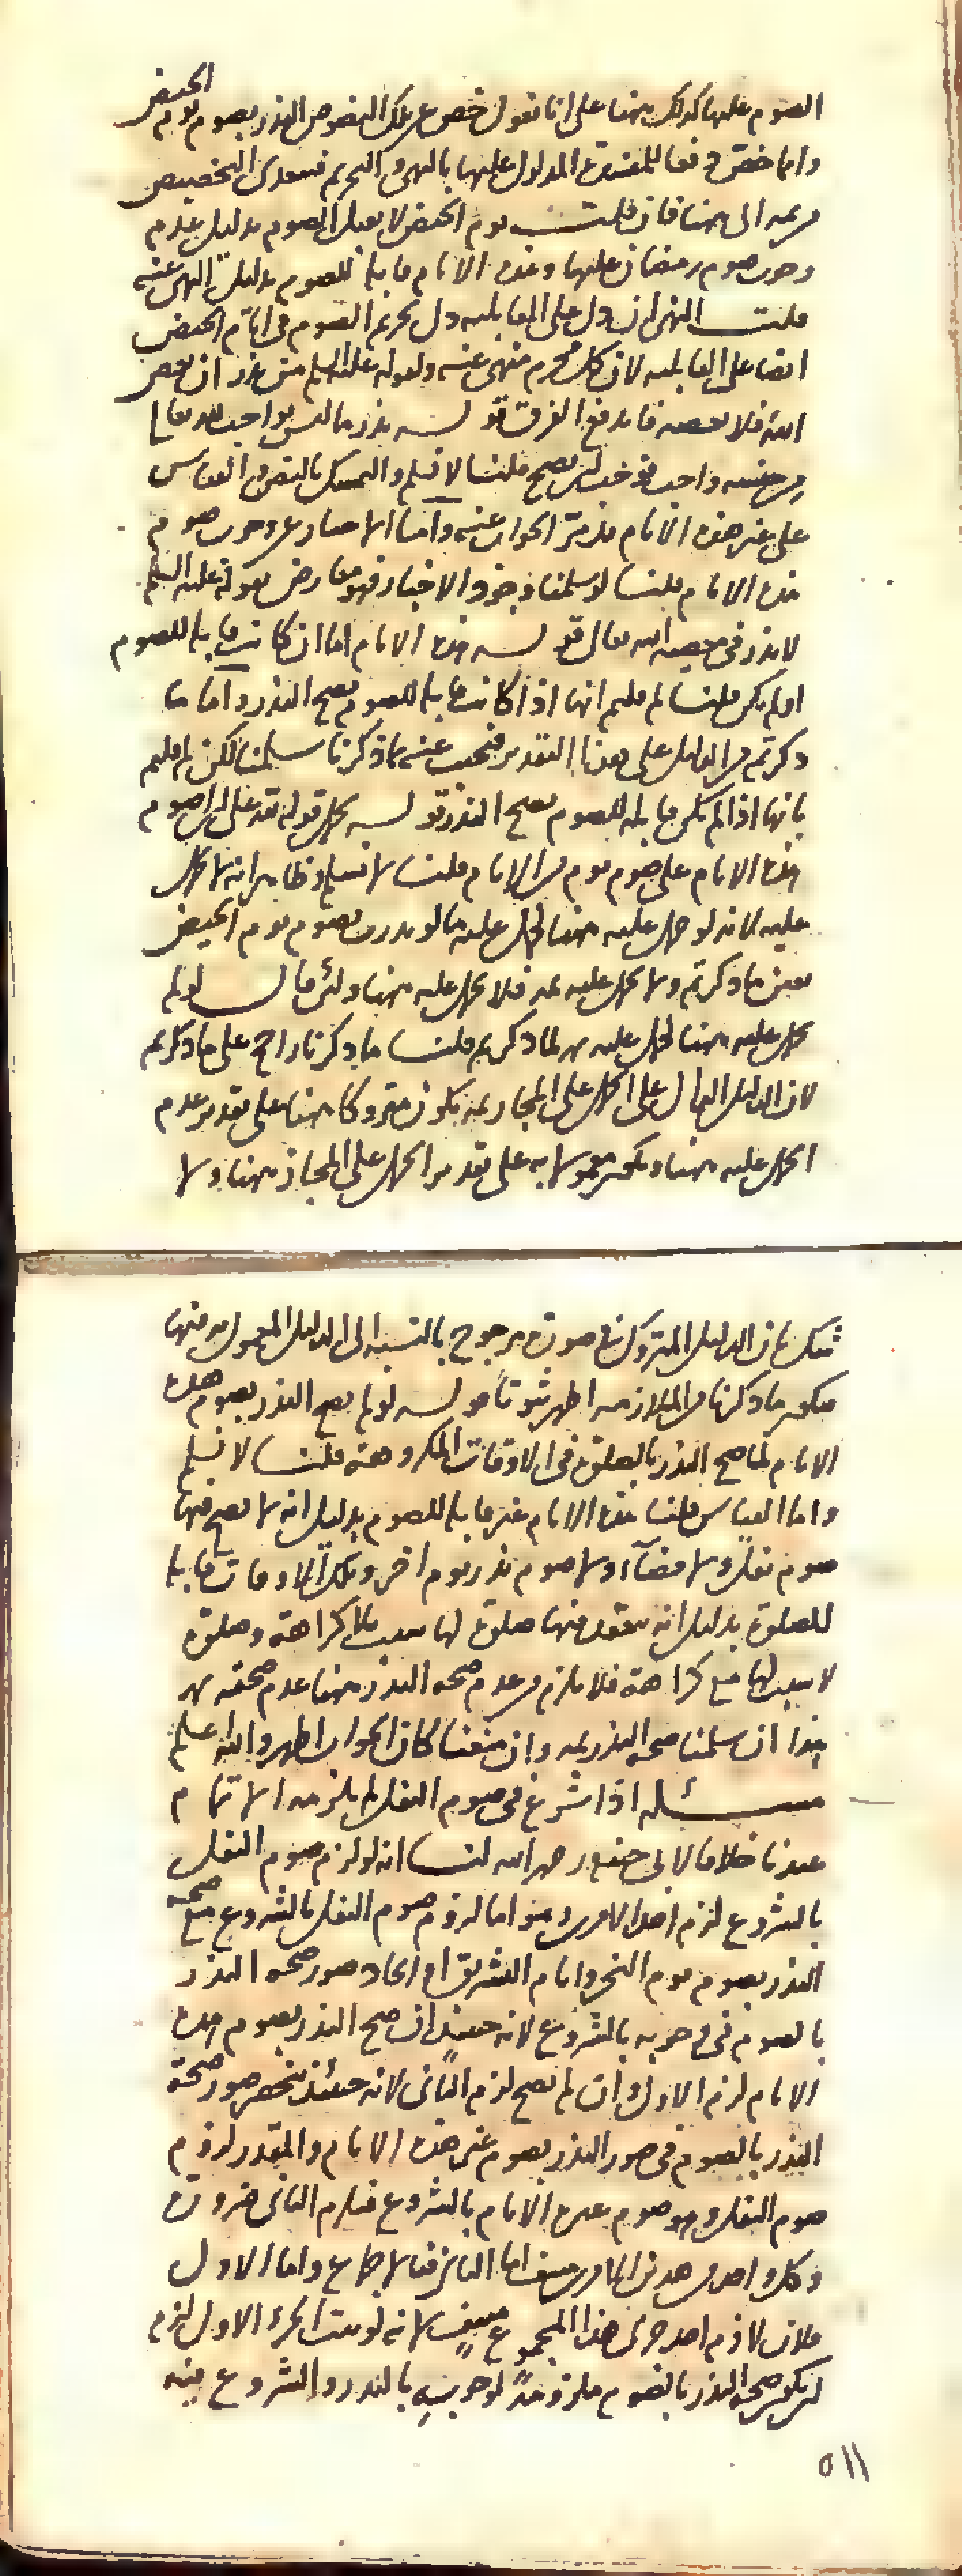 الصوم عليها كذلك ههنا على انا نقول خص عن تلك النصوص النذر بصوم يوم الحيض
وانما خص دفعا للمفسدة المدلول عليها بالنهى والتحريم فيتعدى التخصيص
من ثمه الى ههنا فان قلت يوم الحيض لا يقبل الصوم بدليل عدم
وجوب صوم رمضان عليها وهذه الايام قابلة للصوم بدليل النهى عنه
قلت النهى ان دل على القابلية دل تحريم الصوم فى ايام الحيض
ايضا على القابلية لان كل محرم منهى عنه ولقوله عليه السلم من نذر ان يعصى
الله فلا يعصه فاندفع الفرق قوله نذر ما ليس بواجب لله تعالى
من جنسه واجب فوجب ان يصح قلنا لا نسلم والتمسك بالنص والقياس
على غير هذه الايام قد مر الجواب عنه واما الاخبار عن وجوب صوم
هذه الايام قلنا لو سلمنا وجود الاخبار فهو معارض بقوله عليه السلم
لا نذر فى معصية الله تعالى قوله هذه الايام اما ان كانت قابلة للصوم
او لم يكن قلنا لم قلتم انها اذا كانت قابلة للصوم يصح النذر واما ما
ذكرتم من الدليل على هذا التقدير فنجيب عنه بما ذكرنا سلمنا لكن لم قلتم
بانها اذا لم تكن قابلة للصوم يصح النذر قوله يحمل قوله لله على ان اصوم
هذه الايام على صوم يوم من الايام قلنا لا نسلم وظاهر انه لا يحمل
عليه لانه لو حمل عليه ههنا لحمل عليه ما لو نذرت بصوم يوم الحيض
بعين ما ذكرتم ولا يحمل عليه ثمه فلا يحمل عليه ههنا ولئن قال لو لم
يحمل عليه ههنا لحمل عليه ثمه لما ذكرتم قلنا ما ذكرنا راجح على ما ذكرتم
لان الدليل الدال على الحمل على المجاز ثمه يكون متروكا ههنا على تقدير عدم
الحمل عليه ههنا ويكون معمولا به على تقدير الحمل على المجاز ههنا ولا
شك بان الدليل المتروك فى صورة مرجوح بالنسبة الى الدليل المعمول به فيها
فيكون ما ذكرنا من الملازمة اظهر ثبوتا قوله لو لم يصح النذر بصوم هذه
الايام لما صح النذر بالصلوة فى الاوقات المكروهة قلنا لا نسلم
واما القياس قلنا هذه الايام غير قابلة للصوم بدليل انه لا يصح فيها
صوم نفل ولا قضاء ولا صوم نذر يوم اخر وتلك الاوقات قابلة
للصلوة بدليل انه تنعقد فيها صلوة لها سبب بلا كراهة وصلوة
لا سبب لها مع كراهة فلا يلزم من عدم صحة النذر ههنا عدم صحته ثمه
هذا ان سلمنا صحة النذر ثمه وان منعنا كان الجواب اظهر والله اعلم
مسئلة اذا شرع فى صوم النفل لم يلزمه الاتمام
عندنا خلافا لابى حنيفة رحمه الله لنا انه لو لزم صوم النفل
بالشروع لزم احد الامرين وهو اما لزوم صوم النفل بالشروع مع صحة
النذر بصوم يوم النحر وايام التشريق او اتحاد صور صحة النذر
بالصوم فى وجوبه بالشروع لانه حينئذ ان صح النذر بصوم هذه
الايام لزم الاول وان لم يصح لزم الثانى لانه حينئذ ينحصر صور صحة
النذر بالصوم فى صور النذر بصوم غير هذه الايام والمقدر لزوم
صوم النفل وهو صوم غير الايام بالشروع فيلزم الثانى ضرورة
وكل واحد من هذين الامرين منتف اما الثانى فبالاجماع واما الاول
فلان لازم احد جزئى هذا المجموع منتف لانه لو ثبت الجزء الاول لزم
ان يكون صحة النذر بالصوم ملزومة لوجوبه بالنذر والشروع فيه
٥١١